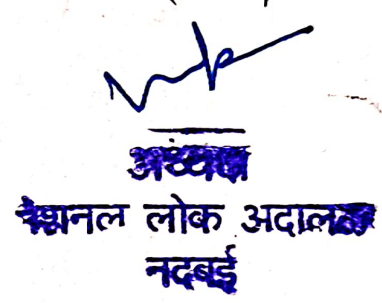 अध्यक्ष
नेशनल लोक अदालत
नदबई